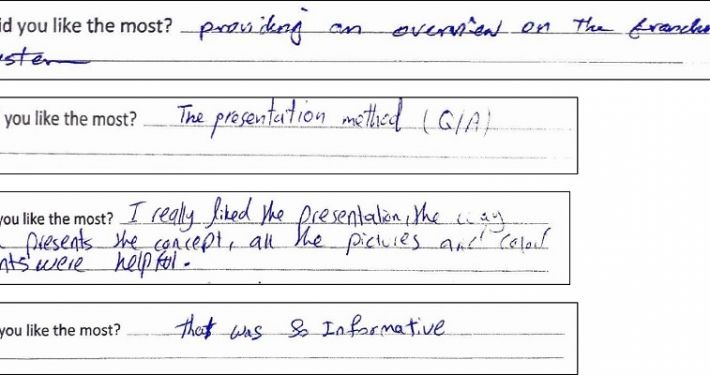 id you like the most? providing an overview on the
ster
you like the most? The presentation method (Q/A)
you like the most? I really liked the presentation, the way
presents the concept, all the pictures and
nts were helpful.
you like the most? that was so Informative